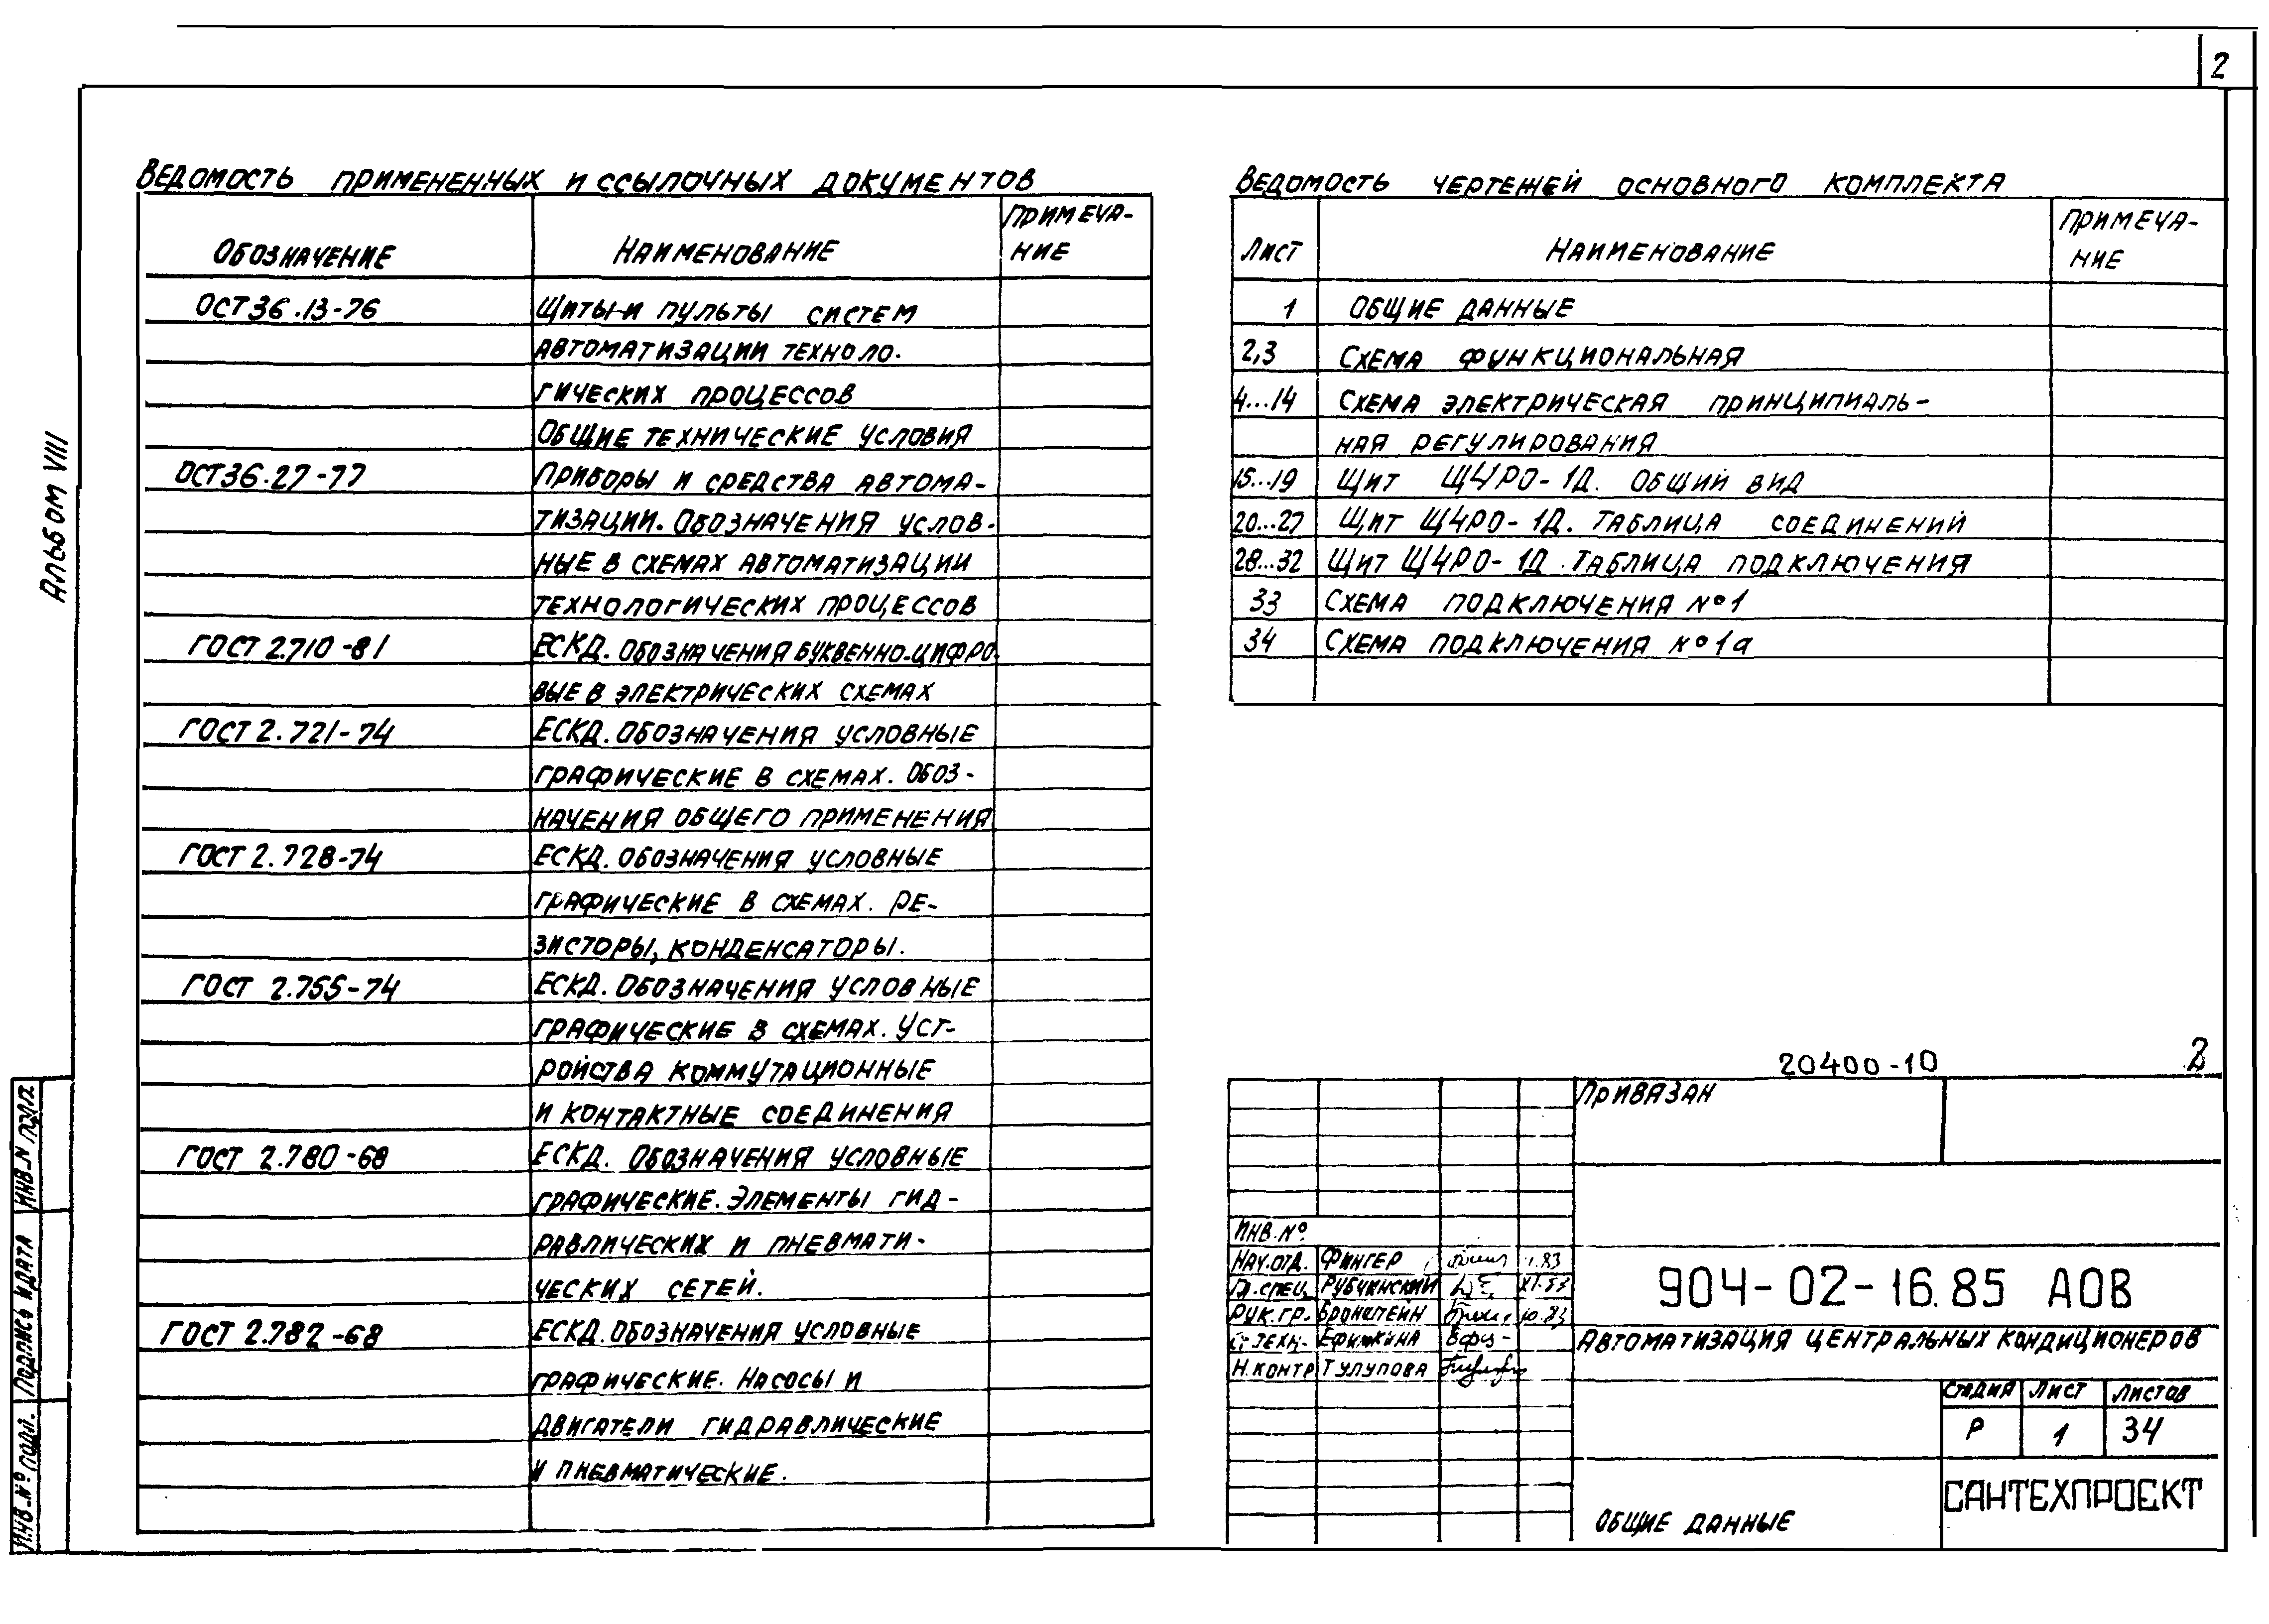 2
Альбом VIII
Ведомость примененных и ссылочных документов
Обозначение Наименование Примеча-
ние
ОСТ 36.13-76 Щиты и пульты систем
автоматизации техноло-
гических процессов
Общие технические условия
ОСТ 36.27-77 Приборы и средства автома-
тизации. Обозначения услов-
ные в схемах автоматизации
технологических процессов
ГОСТ 2.710-81 ЕСКД. Обозначения буквенно-цифро-
вые в электрических схемах
ГОСТ 2.721-74 ЕСКД. Обозначения условные
графические в схемах. Обоз-
начения общего применения
ГОСТ 2.728-74 ЕСКД. Обозначения условные
графические в схемах. Ре-
зисторы, конденсаторы.
ГОСТ 2.755-74 ЕСКД. Обозначения условные
графические в схемах. Уст-
ройства коммутационные
и контактные соединения
ГОСТ 2.780-68 ЕСКД. Обозначения условные
графические. Элементы гид-
равлических и пневмати-
ческих сетей.
ГОСТ 2.782-68 ЕСКД. Обозначения условные
графические. Насосы и
двигатели гидравлические
и пневматические.
Ведомость чертежей основного комплекта
Лист Наименование Примеча-
ние
1 Общие данные
2,3 Схема функциональная
4...14 Схема электрическая принципиаль-
ная регулирования
15...19 Щит ЩЧРО-1Д. Общий вид
20...27 Щит ЩЧРО-1Д. Таблица соединений
28...32 Щит ЩЧРО-1Д. Таблица подключения
33 Схема подключения №1
34 Схема подключения №1а
20400-10 2
Привязан
Инв. №
Нач. отд. Фингер
Гл. спец. Рубчинский XI.83
Рук. гр. Бронштейн 10.83
Ст. техн. Ефимкина
Н. контр Тулупова
904-02-16.85 АОВ
Автоматизация центральных кондиционеров
Стадия Лист Листов
Р 1 34
Общие данные
САНТЕХПРОЕКТ
Инв. № подл. Подпись и дата Инв. N